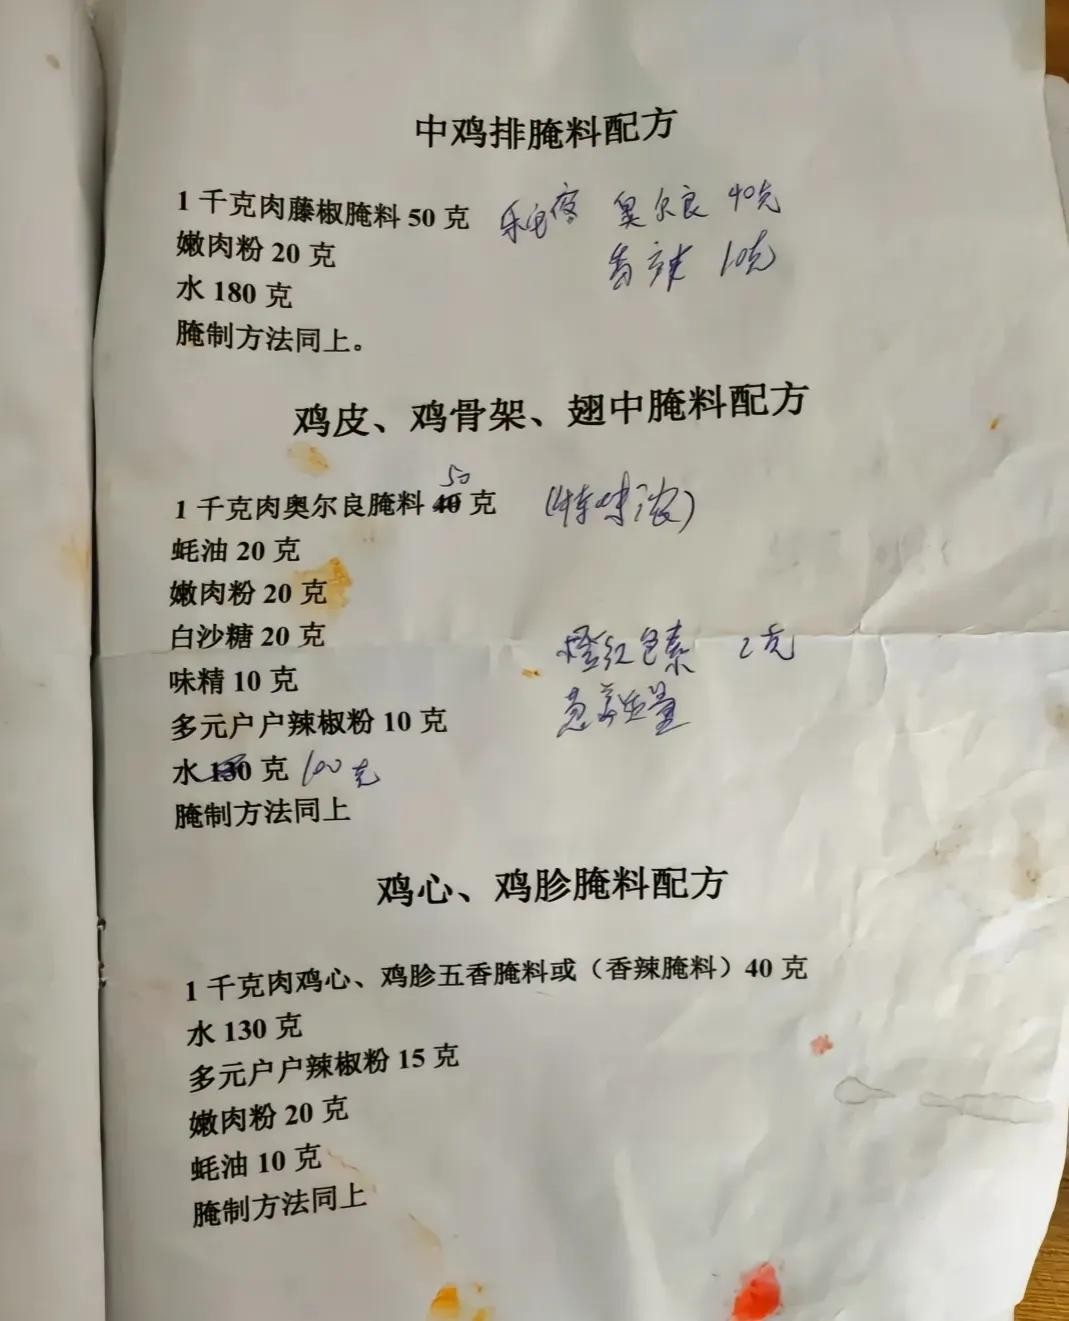 中鸡排腌料配方
1 千克肉藤椒腌料 50 克 奥尔良 40克
香辣 10克
嫩肉粉 20 克
水 180 克
腌制方法同上。
鸡皮、鸡骨架、翅中腌料配方
50
1 千克肉奥尔良腌料 40 克 (特味浓)
蚝油 20 克
嫩肉粉 20 克
白沙糖 20 克
橙红色素 2克
味精 10 克
多元户户辣椒粉 10 克
水 130 克 100克
腌制方法同上
鸡心、鸡胗腌料配方
1 千克肉鸡心、鸡胗五香腌料或（香辣腌料）40 克
水 130 克
多元户户辣椒粉 15 克
嫩肉粉 20 克
蚝油 10 克
腌制方法同上